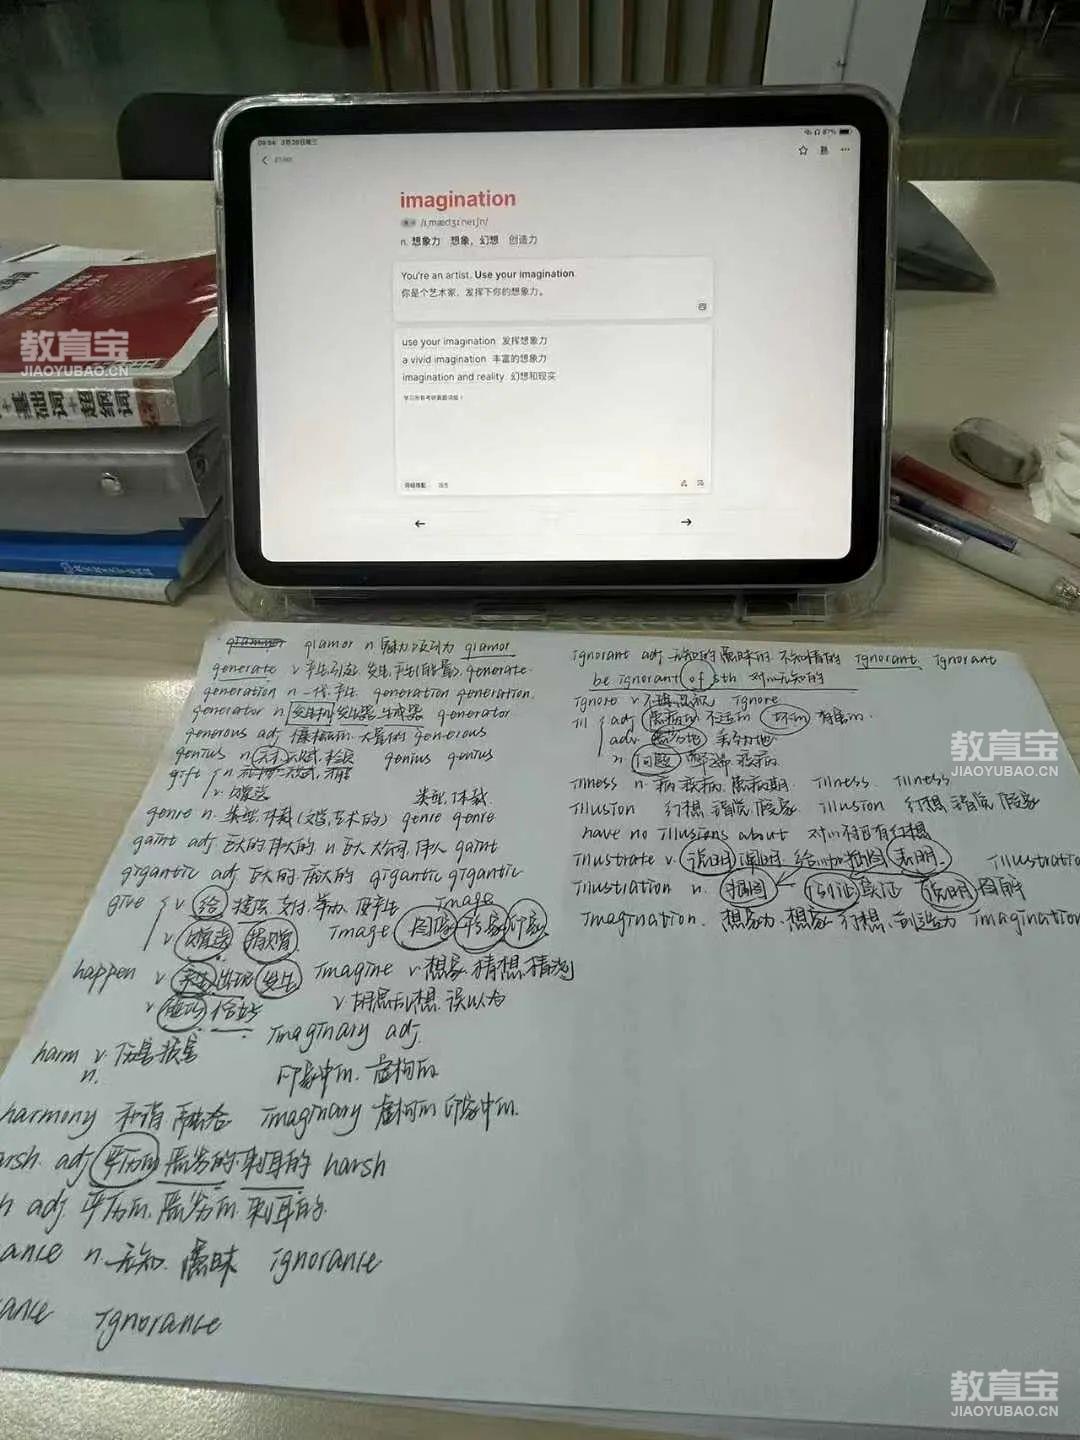 imagination
n. 想象力 想象，幻想 创造力
You're an artist. Use your imagination.
你是个艺术家，发挥下你的想象力。
use your imagination 发挥想象力
a vivid imagination 丰富的想象力
imagination and reality 幻想和现实
教育宝
JIAOYUBAO.CN
基础词+超纲词
glamor n 魅力 吸引力 glamor
generate v 产生 引起 发生 产生(能量) generate
generation n 一代 产生 generation generation
generator n 发电机 发生器 生成器 generator
generous adj 慷慨的 大量的 generous
genius n 天才 genius genius
gift n
v 赠送
类型 体裁
genre n. 类型 体裁 (文学 艺术的) genre genre
gaint adj 巨大的 伟大的 n 巨人 大公司 伟人 gaint
gigantic adj 巨大的 庞大的 gigantic gigantic
give v 给 提供 支付 举办 image
v 赠送 捐赠 image 图像 形象 印象
happen v 发生 出现 imagine v 想象 猜想 猜测
v 碰巧 恰好 v 胡思乱想 误以为
imaginary adj.
harm v. 伤害 损害
n. 印象中的 虚构的
harmony 和谐 融洽 imaginary 虚构的 印象中的
rsh adj 严厉的 恶劣的 刺耳的 harsh
h adj 严厉的 恶劣的 刺耳的
ance n. 无知 愚昧 ignorance
ance ignorance
ignorant adj 无知的 愚昧的 不知情的 ignorant ignorant
be ignorant of sth 对…无知的
ignore v 不理 忽视 ignore
ill adj 有病的 不适的 坏的 有害的
adv
n 问题
illness n. 病 疾病 患病期 illness illness
illusion 幻想 错觉 假象 illusion 幻想 错觉 假象
have no illusions about 对…不抱有幻想
illustrate v. 说明 阐明 给…加插图 表明 illustratio
illustration n. 插图 例证 实证 说明 图解
imagination. 想象力 想象 幻想 创造力 imagination
教育宝
JIAOYUBAO.CN
教育宝
JIAOYUBAO.CN